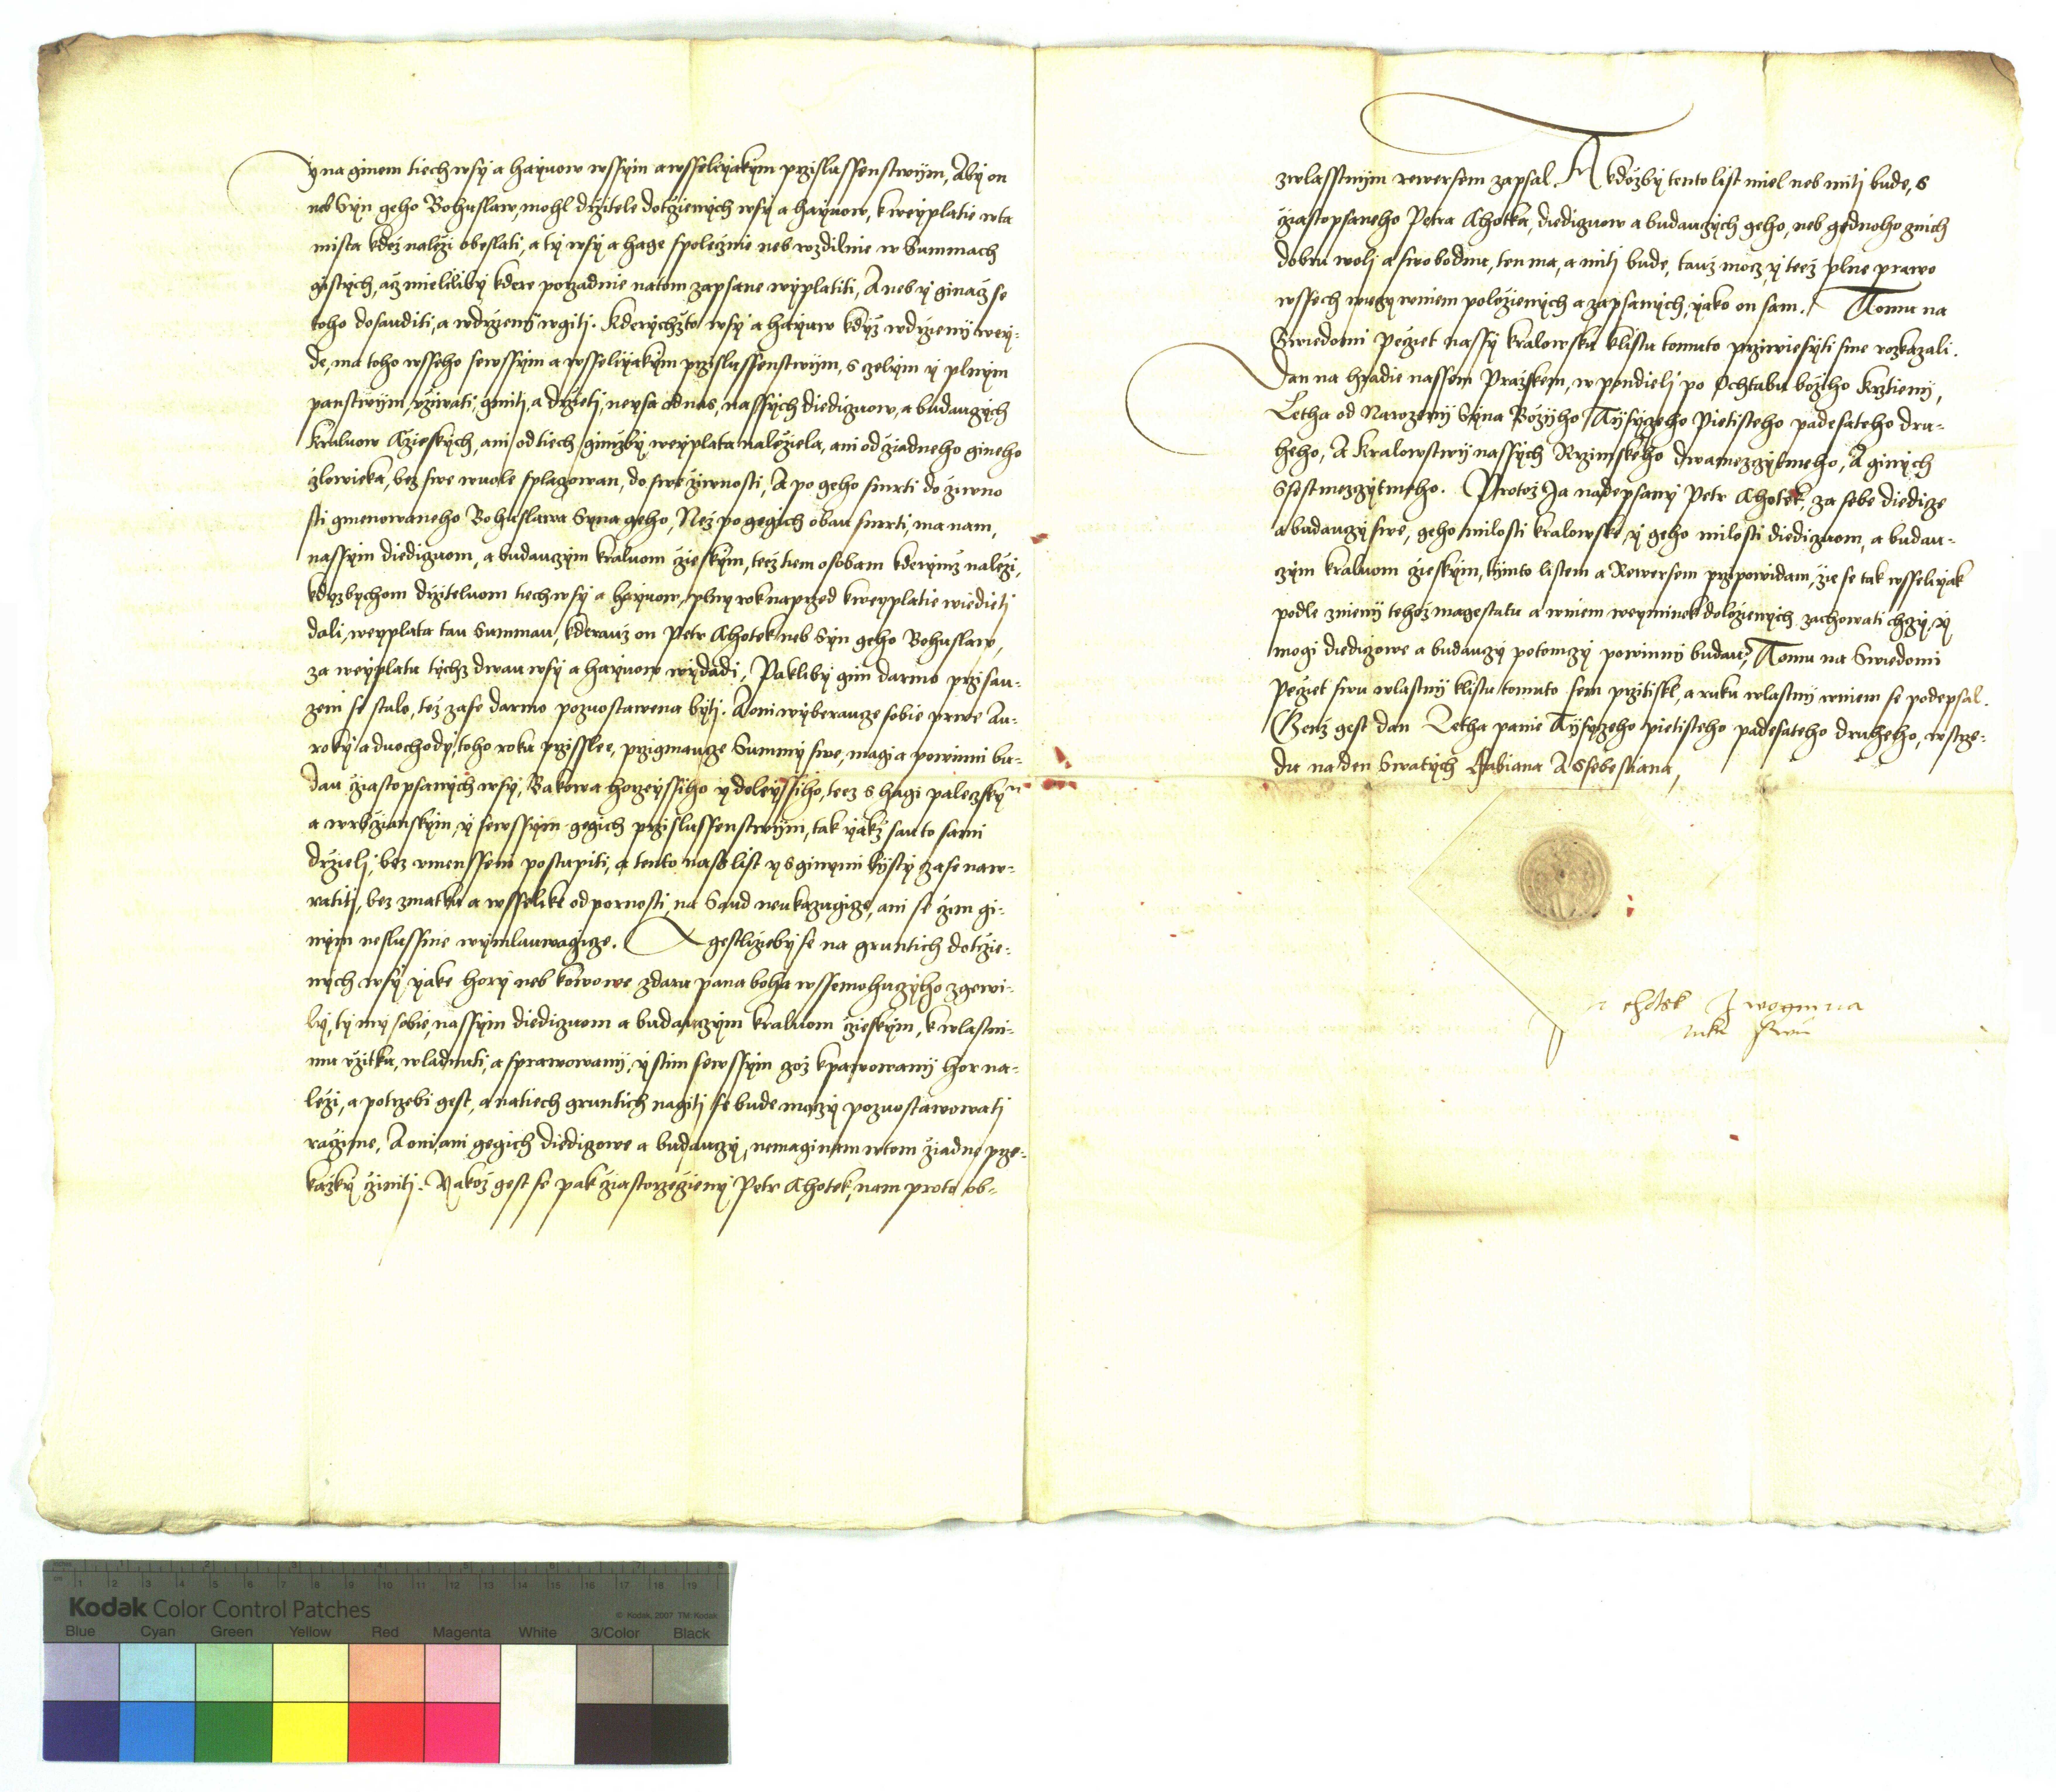 y na ginem tiech wsy a hayuow wssym a wsselyakym przislussenstwym, Aby on
neb Syn geho Bohuslaw, mohl drzitele dotczienych wsy a hayuow, k weyplatie w ta
mista kdez nalezi obeslati, a ty wsy a hage spolecznie neb rozdilnie w Summach
gistych, acz mieliliby kdere porzadnie natom zapsane wyplatiti, A neb y ginacz se
toho dosauditi, a w drzeny wgiti. Kderychzto wsy a hayuw kdyz w drzieny wey-
de, ma toho wsseho sewssym a wsselyakym przislussenstwym, s czelym y plnym
panstwym, vziwati, gmiti, a drzeti, neysa od nas, nassych diediczuow, a budauczych
Kraluow Czieskych, ani od tiech gimzby weyplata naleziela, ani od ziadneho gineho
czlowieka, bez swe wuole splaczowan, do swe ziwnosti, A po geho smrti do ziwno
sti gmenowaneho Bohuslawa Syna geho, Nez po gegich obau smrti, ma nam,
nassym diediczuom, a budauczym kraluom czieskym, teez tiem osobam kderymz nalezi,
kdyzbychom drziteluom tiech wsy a hayuow, plny rok naprzed k weyplatie wiedieti
dali, weyplata tau Summau, kderauz on Petr Chotek neb Syn geho Bohuslaw,
za weyplatu tychz dwau wsy a hayuow wydadi, Pakliby gim darmo przisau-
zeni se stalo, tez zase darmo pozuostawena byti. A oni wyberauce sobie prwe Au-
roky a duochody, toho roku przissle, przigmauce Summy swe, magi a powinni bu-
dau cziastopsanych wsy, Bakowa horzeyssiho y doleyssiho, teez s hagi paleczskym
a wrbczianskym, y sewssym gegich przislussenstwym, tak yakz sau to sami
drzieli, bez vmensseni postupiti, a tento nass list y s ginymi lysty zase naw-
ratiti, bez zmatku a wsselike odpornosti, na Saud neukazugicze, ani se czim gi-
nym neslussnie wymlauwagicze. A gestlizieby se na gruntich dotczie-
nych wsy yake hory neb kowowe z daru pana boha wssemohuczyho zgewi-
ly, ty my sobie, nassym diediczuom a budauczym kraluom czieskym, k wlastni-
mu vzitku, wladnuti, a sprawowany, y stim sewssym czoz k pawowany hor na-
lezi, a potrzebi gest, a na tiech gruntich nagiti se bude moczy pozuostawowati
raczime, A oni, ani gegich diediczowe a budauczy, nemagi nam w tom ziadne prze-
kazky cziniti. Yakoz gest se pak cziastorzeczieny Petr Chotek, nam proto ob-
zwlasstnym rewersem zapsal. A kdozby tento list miel neb miti bude, s
cziastopsaneho Petra Chotka, diediczuow a budauczych geho, neb gednoho z nich
dobru woli a swobodnu, ten ma, a miti bude, tauz mocz y teez plne prawo
wssech wieczy w niem polozienych a zapsanych, yako on sam. Tomu na
Swiedomi Peczet nassy kralowsku k listu tomuto przywiesyti sme rozkazali.
Dan na hradie nassem Prazskem, w pondieli po Ochtabu bozeho Krztieny,
Letha od Narozeny Syna Bozyho Tysyczeho Pietisteho padesateho dru-
heho, A Kralowstwy nassych Rzimskeho dwamezczytmeho, A ginych
Ssestmezczytmeho. Protoz Ja nadepsany Petr Chotek, za sebe diedicze
a budauczy swe, geho milosti kralowske, y geho milosti diediczuom, a budau-
czym kraluom czieskym, tymto listem a Rewersem przipowidam, zie se tak wsselyak
podle znieny tehoz magestatu a w niem weyminek dolozienych zachowati chczy, y
mogi diediczowe a budauczy potomczy powinny budau, Tomu na Swiedomi
Peczet swu wlastny k listu tomuto sem przitiskl, a ruku wlastny w niem se podepsal.
Genz gest dan Letha panie Tysyczeho pietisteho padesateho druheho, w strze-
du na den Swatych Fabiana A Ssebestiana,
chotek z wognina
ruku swu
Kodak Color Control Patches
© Kodak, 2007 TM: Kodak
Blue Cyan Green Yellow Red Magenta White 3/Color Black